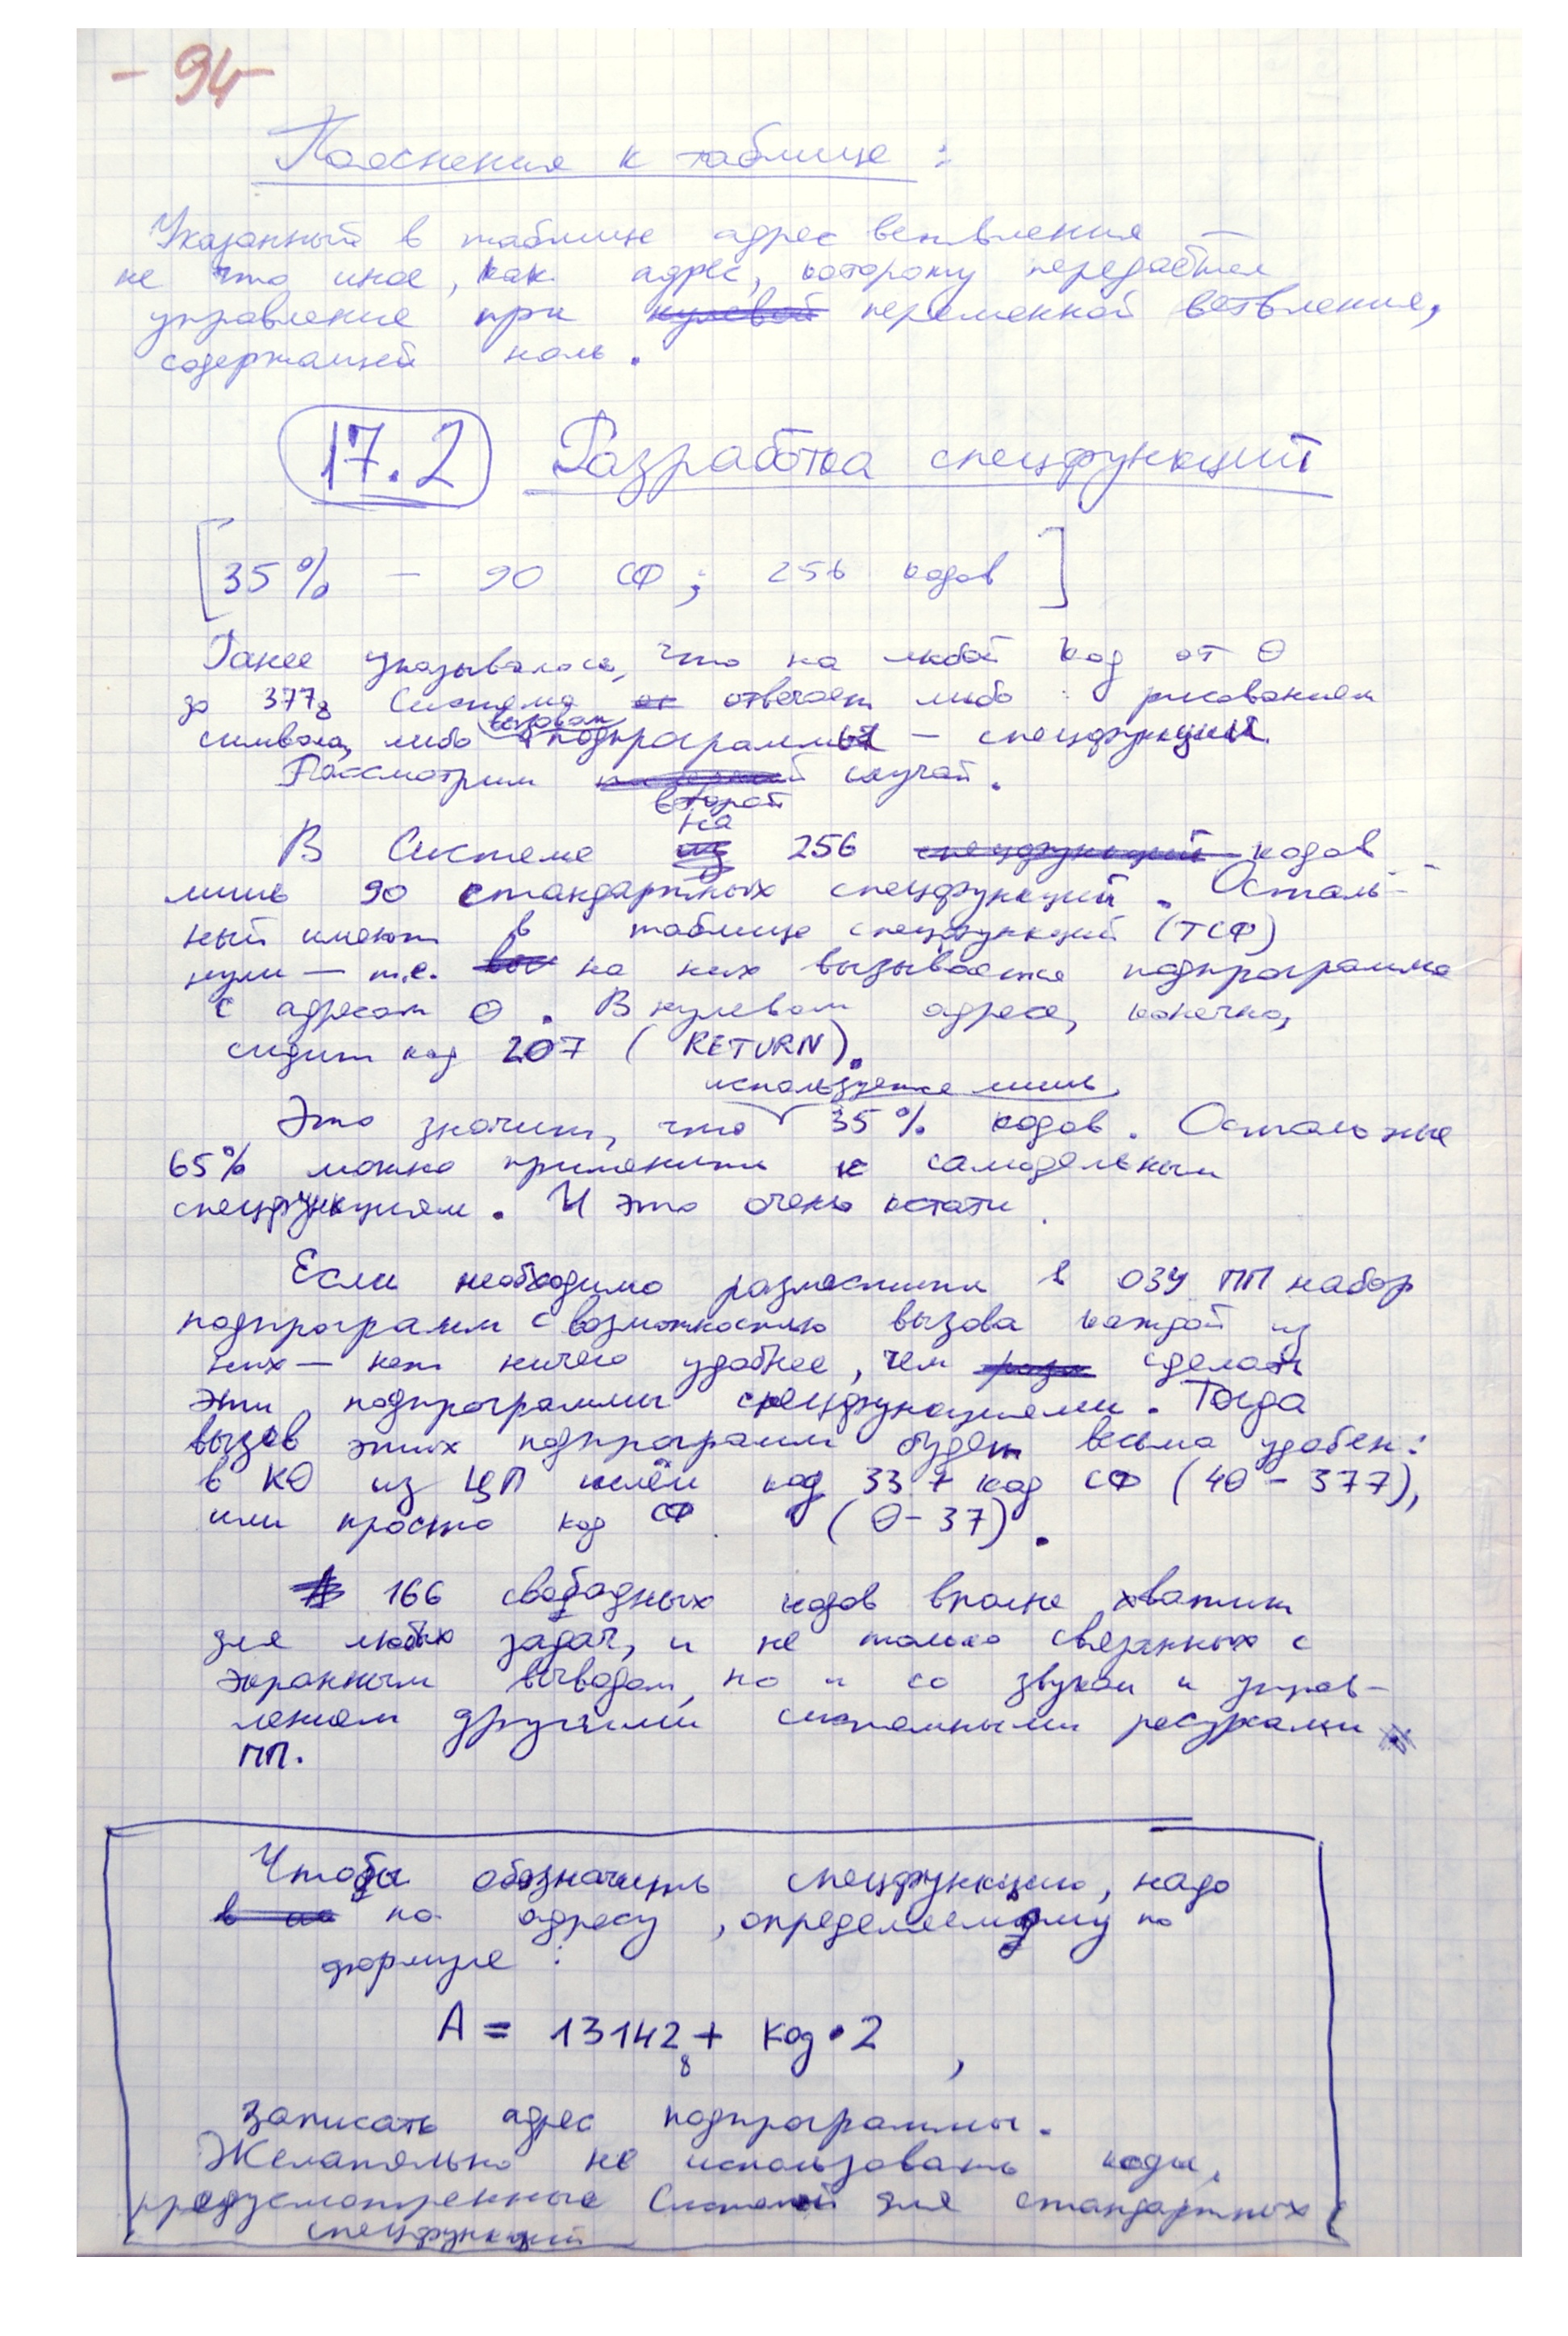 - 94 -
Пояснения к таблице :
Указанный в таблице адрес ветвления —
не что иное, как адрес, которому передаётся
управление при нулевой переменной ветвления,
содержащей ноль.
17.2 Разработка спецфункций
[35% — 90 СФ; 256 кодов]
Ранее указывалось, что на любой код от 0
до 377₈ Система отвечает либо рисованием
вызовом
символа, либо подпрограммы — спецфункции.
Рассмотрим случай.
второй
на
В Системе из 256 спецфункций кодов
лишь 90 стандартных спецфункций. Осталь-
ный имеют в таблице спецфункций (ТСФ)
нули — т.е. вы на них вызывается подпрограмма
с адресом 0. В нулевом адресе, конечно,
сидит код 207 (RETURN).
используется лишь
Это значит, что 35% кодов. Остальные
65% можно применить к самодельным
спецфункциям. И это очень кстати.
Если необходимо разместить в ОЗУ ПП набор
подпрограмм с возможностью вызова каждой из
них — нет ничего удобнее, чем сделать
эти подпрограммы спецфункциями. Тогда
вызов этих подпрограмм будет весьма удобен:
в К0 из ЦП шлём код 33 + код СФ (40 - 377),
или просто код СФ (0 - 37).
166 свободных кодов вполне хватит
для любых задач, и не только связанных с
экранным выводом, но и со звуком и управ-
лением другими системными ресурсами
ПП.
Чтобы обозначить спецфункцию, надо
по адресу, определяемому по
формуле :
A = 13142₈ + код • 2 ,
записать адрес подпрограммы.
Желательно не использовать коды,
предусмотренные Системой для стандартных
спецфункций